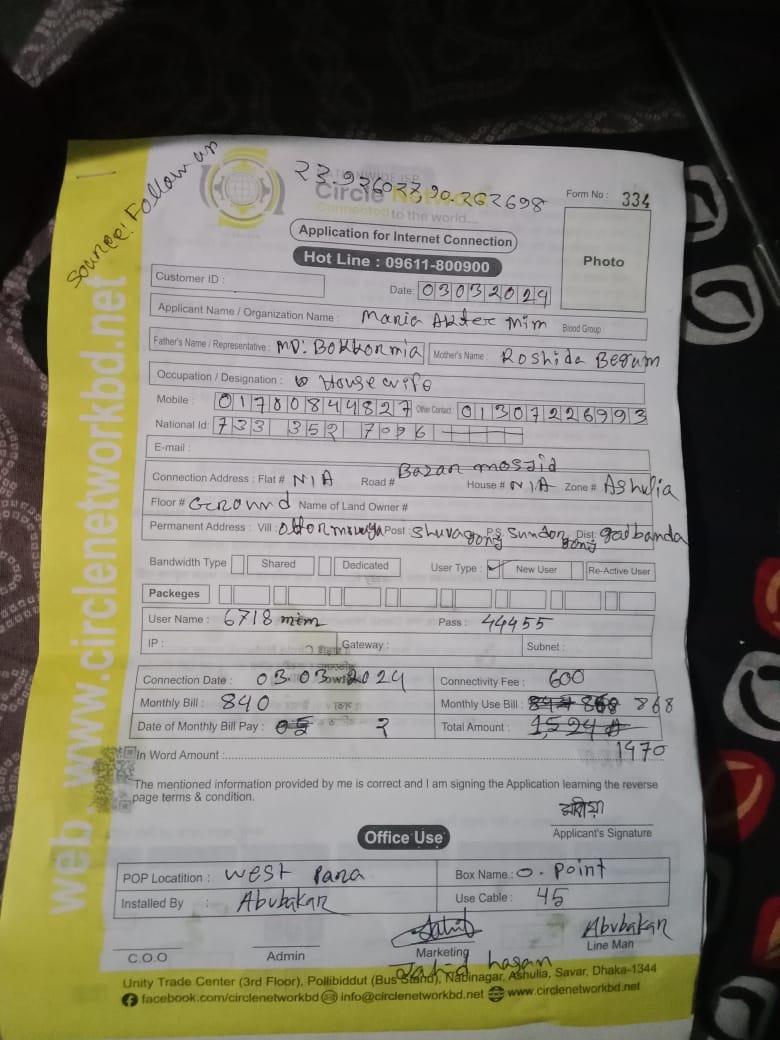 Source: Follow up
23.9260 2390.262698
Circle Network
Connected to the world...
Form No : 334
Application for Internet Connection
Hot Line : 09611-800900
Photo
Customer ID :
Date: 03032024
Applicant Name / Organization Name : Maria Akter mim Blood Group :
Father's Name / Representative : MD: Bokkor mia Mother's Name : Roshida Begum
Occupation / Designation : House wife
Mobile : 01780844827 Other Contact : 01307226993
National Id: 733 352 7096
E-mail :
Connection Address : Flat # N/A Road # Bazar mosjid House # N/A Zone # Ashulia
Floor # Ground Name of Land Owner #
Permanent Address : Vill : Post : Shuvagong P.S Sundorgong Dist: gaibanda
Bandwidth Type Shared Dedicated User Type : ✓ New User Re-Active User
Packeges
User Name : 6718 mim Pass : 44455
IP : Gateway : Subnet :
Connection Date : 03.03.2024 Connectivity Fee : 600
Monthly Bill : 840 Monthly Use Bill : 868 868
Date of Monthly Bill Pay : 05 2 Total Amount : 1524
In Word Amount : 1470
The mentioned information provided by me is correct and I am signing the Application learning the reverse
page terms & condition.
Applicant's Signature
Office Use
POP Locatition : West Para Box Name : O. Point
Installed By : Abubakar Use Cable : 45
Abubakar
C.O.O Admin Marketing Line Man
Jahid hasan
Unity Trade Center (3rd Floor), Pollibiddut (Bus Stand), Nabinagar, Ashulia, Savar, Dhaka-1344
facebook.com/circlenetworkbd info@circlenetworkbd.net www.circlenetworkbd.net
web. www.circlenetworkbd.net